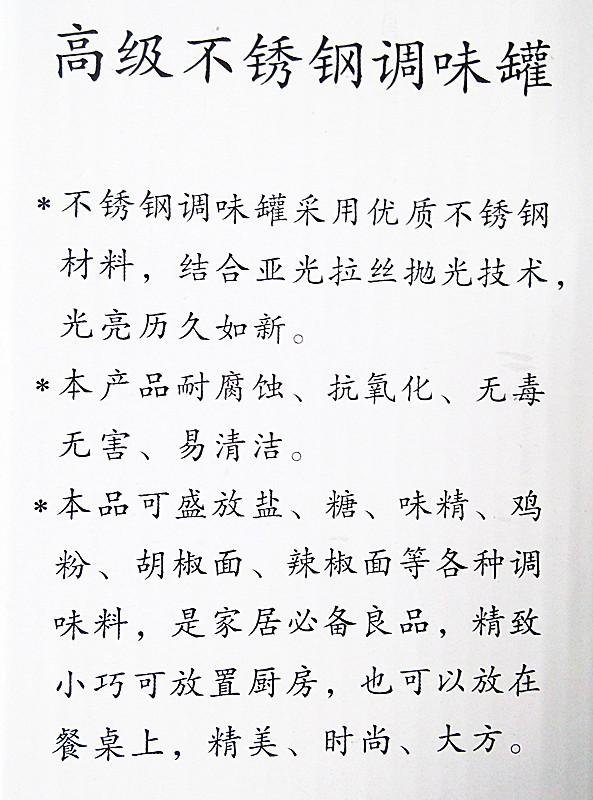 高级不锈钢调味罐
*不锈钢调味罐采用优质不锈钢
材料，结合亚光拉丝抛光技术，
光亮历久如新。
*本产品耐腐蚀、抗氧化、无毒
无害、易清洁。
*本品可盛放盐、糖、味精、鸡
粉、胡椒面、辣椒面等各种调
味料，是家居必备良品，精致
小巧可放置厨房，也可以放在
餐桌上，精美、时尚、大方。